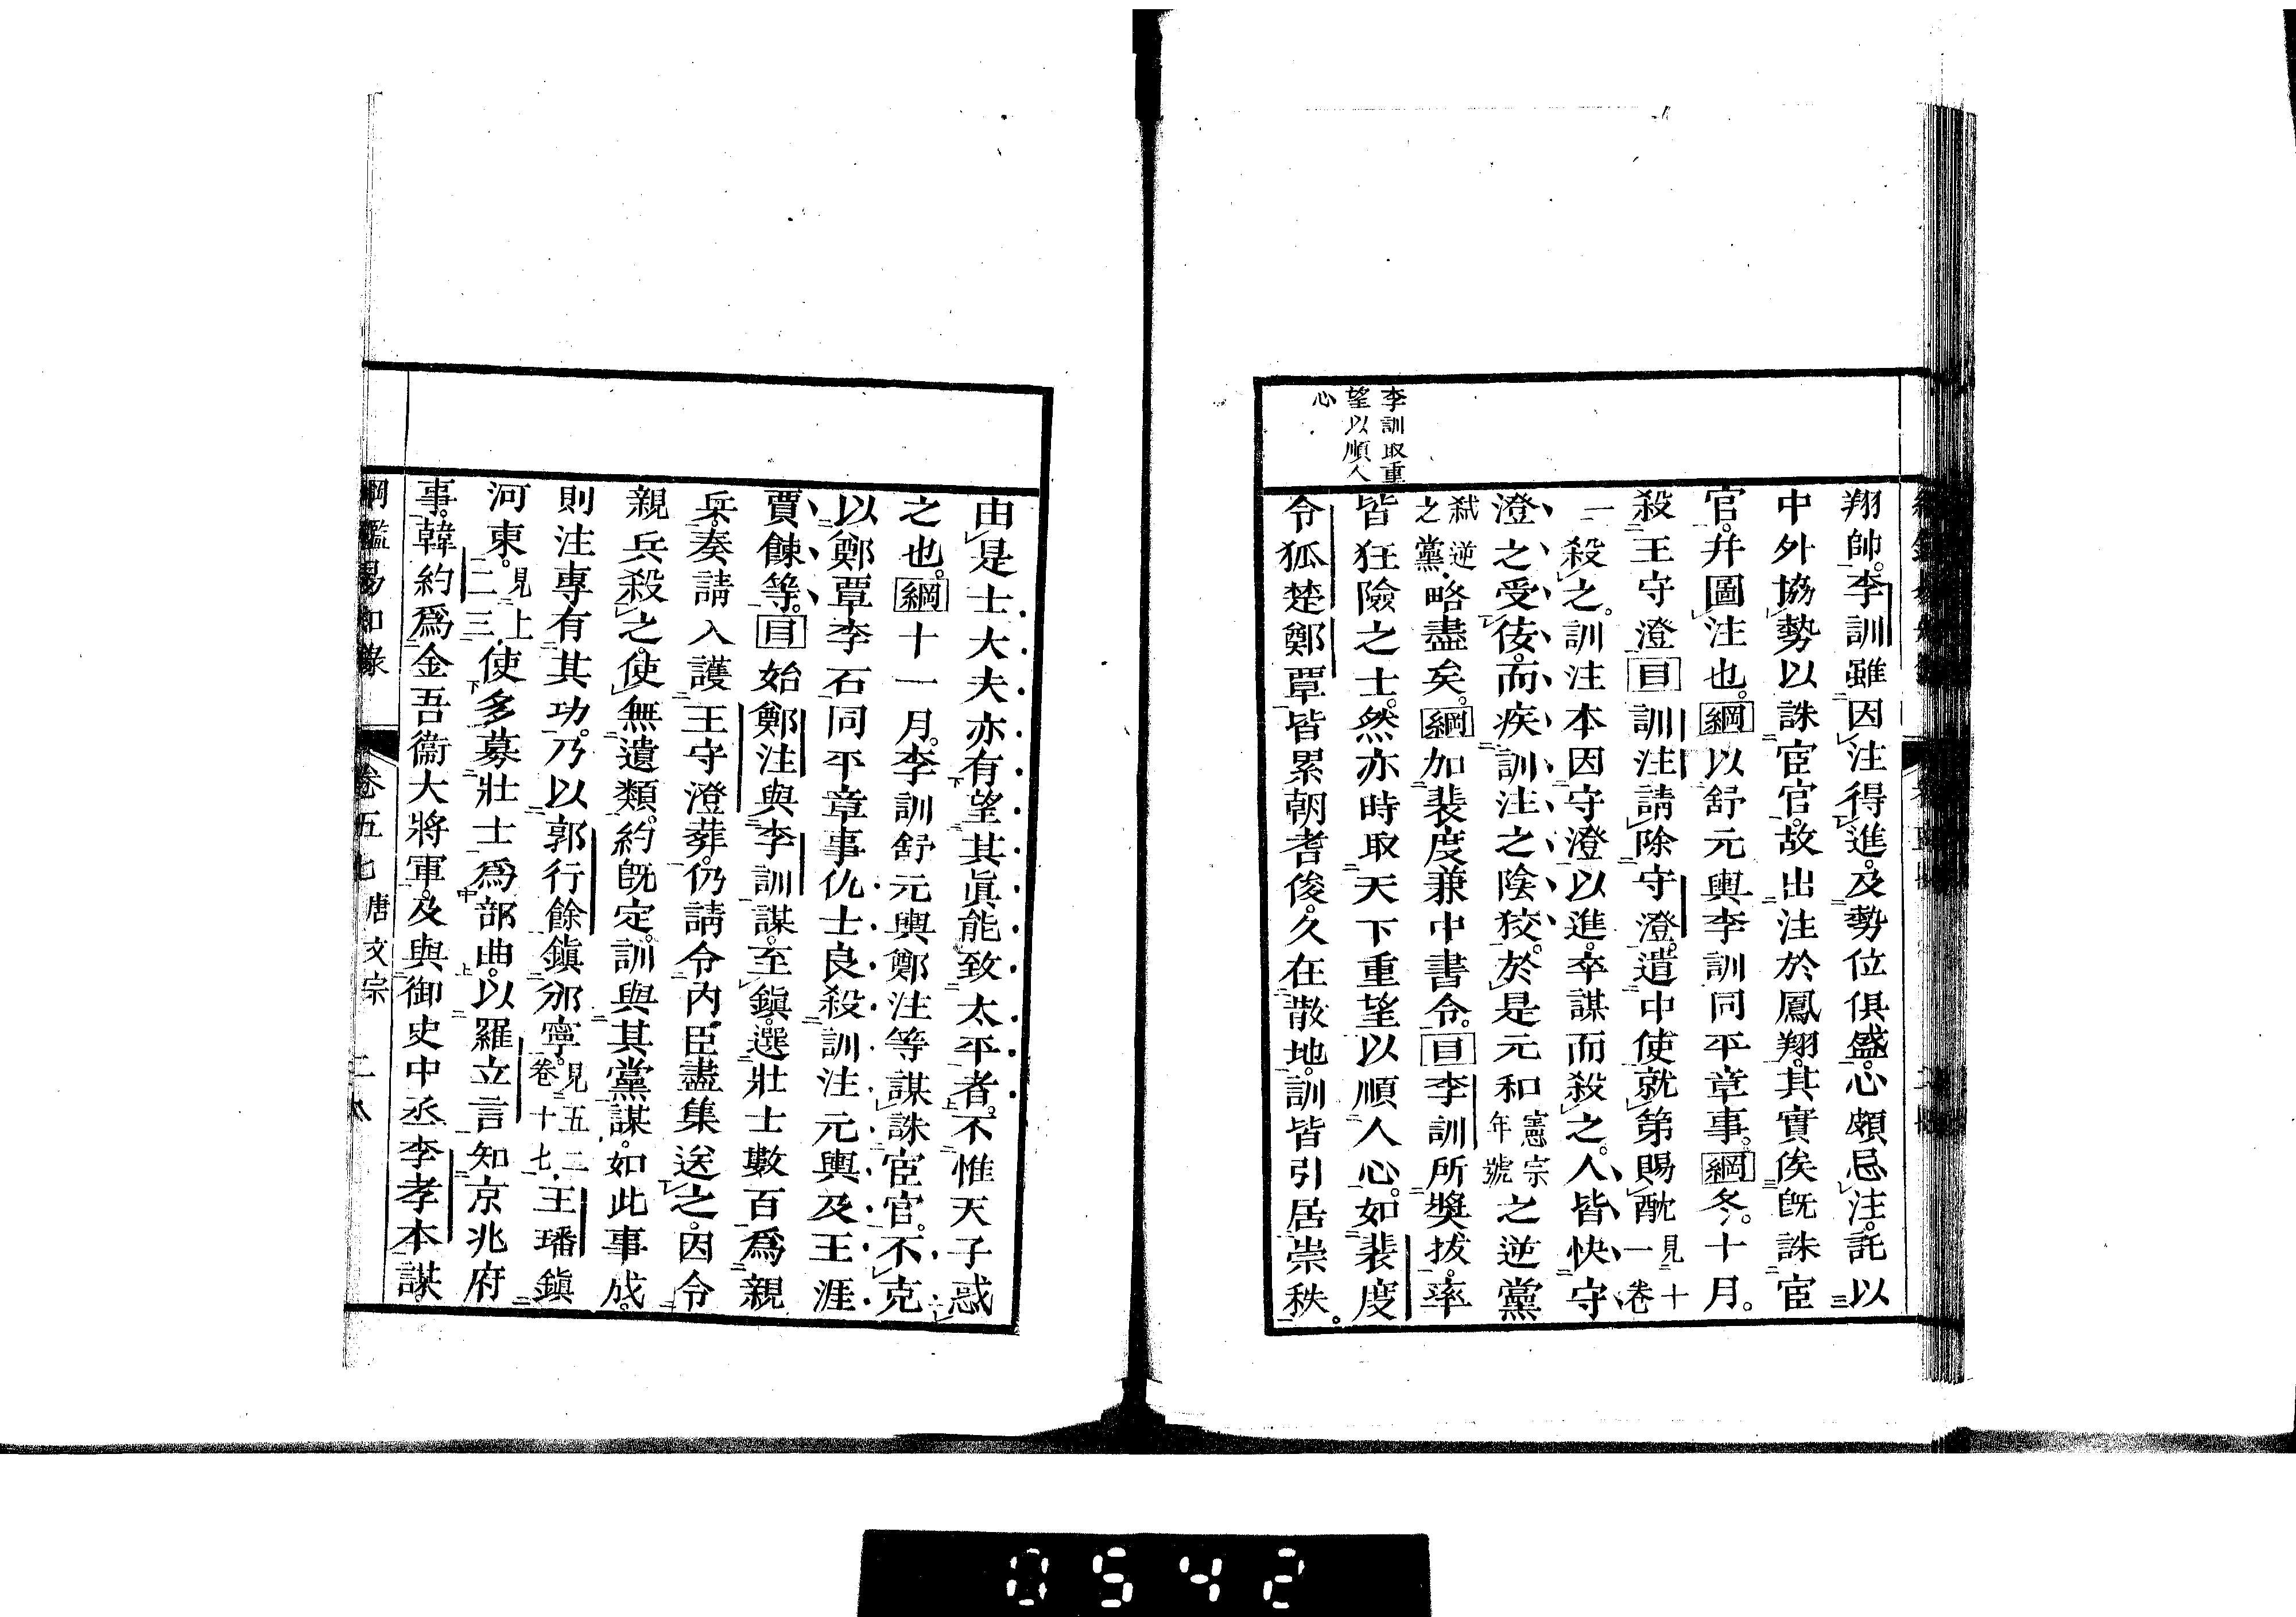 李訓取重
望以順人
心
翔帥。李訓雖因注得進。及勢位俱盛。心頗忌注。託以
中外協勢以誅宦官。故出注於鳳翔。其實俟既誅宦
官。幷圖注也。綱以舒元輿李訓同平章事。綱冬。十月。
殺王守澄目訓注請除守澄。遣中使就第賜酖見十一卷
一殺之。訓注本因守澄以進。卒謀而殺之。人皆快守
澄之受佞。而疾訓注之陰狡。於是元和憲宗年號之逆黨
弑逆之黨。略盡矣。綱加裴度兼中書令。目李訓所奬拔。率
皆狂險之士。然亦時取天下重望以順人心。如裴度
令狐楚鄭覃皆累朝耆俊。久在散地。訓皆引居崇秩。
由是士大夫亦有望其眞能致太平者。不惟天子惑
之也。綱十一月。李訓舒元輿鄭注等謀誅宦官。不克
以鄭覃李石同平章事仇士良殺訓注元輿及王涯
賈餗等。目始鄭注與李訓謀。至鎭。選壯士數百爲親
兵。奏請入護王守澄葬。仍請令內臣盡集送之。因令
親兵殺之。使無遺類。約既定。訓與其黨謀。如此事成。
則注專有其功。乃以郭行餘鎭邠寧。見五二卷十七。王璠鎭
河東。見上二三。使多募壯士爲部曲。以羅立言知京兆府
事。韓約爲金吾衞大將軍。及與御史中丞李孝本謀。
綱鑑易知錄 卷五七 唐文宗 二八
0542